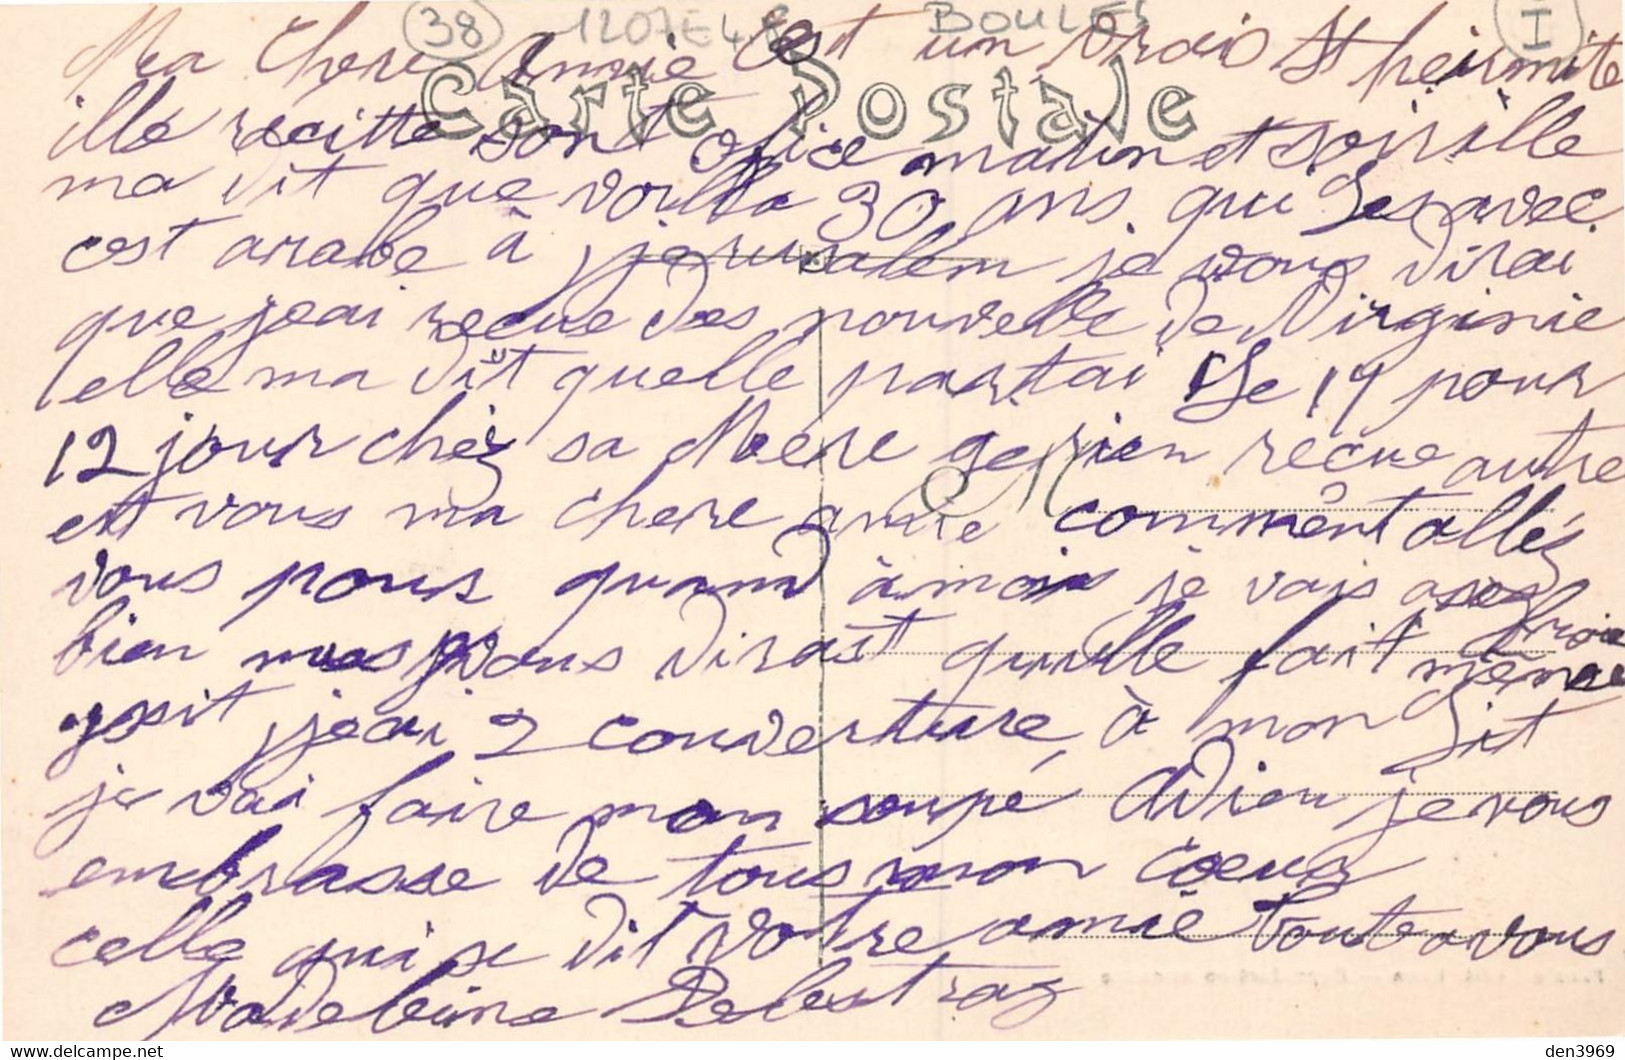 38 1207E48 BOULES I
Carte Postale
Ma Chere Amie Cest un vrais St heirmite
ille recitte sont ofice matin et soir ille
ma dit que voilla 30 ans qui Ses avec
cest arabe à jerusalem je vous dirai
que jeai recue des nouvelle de Virginie
elle ma dit quelle partai Le 19 pour
12 jour chéz sa Mere ge rien recue autre
et vous ma chere amie commént alléz
vous pour quand à mois je vais aséz
bien mes vous dirast quille fait froie
jeai 2 couverture à mon Lit
je vai faire mon soupé Adieu je vous
embrasse de tous mon coeur
celle qui se dit votre amie toute a vous
Madeleine Delestraz
den3969